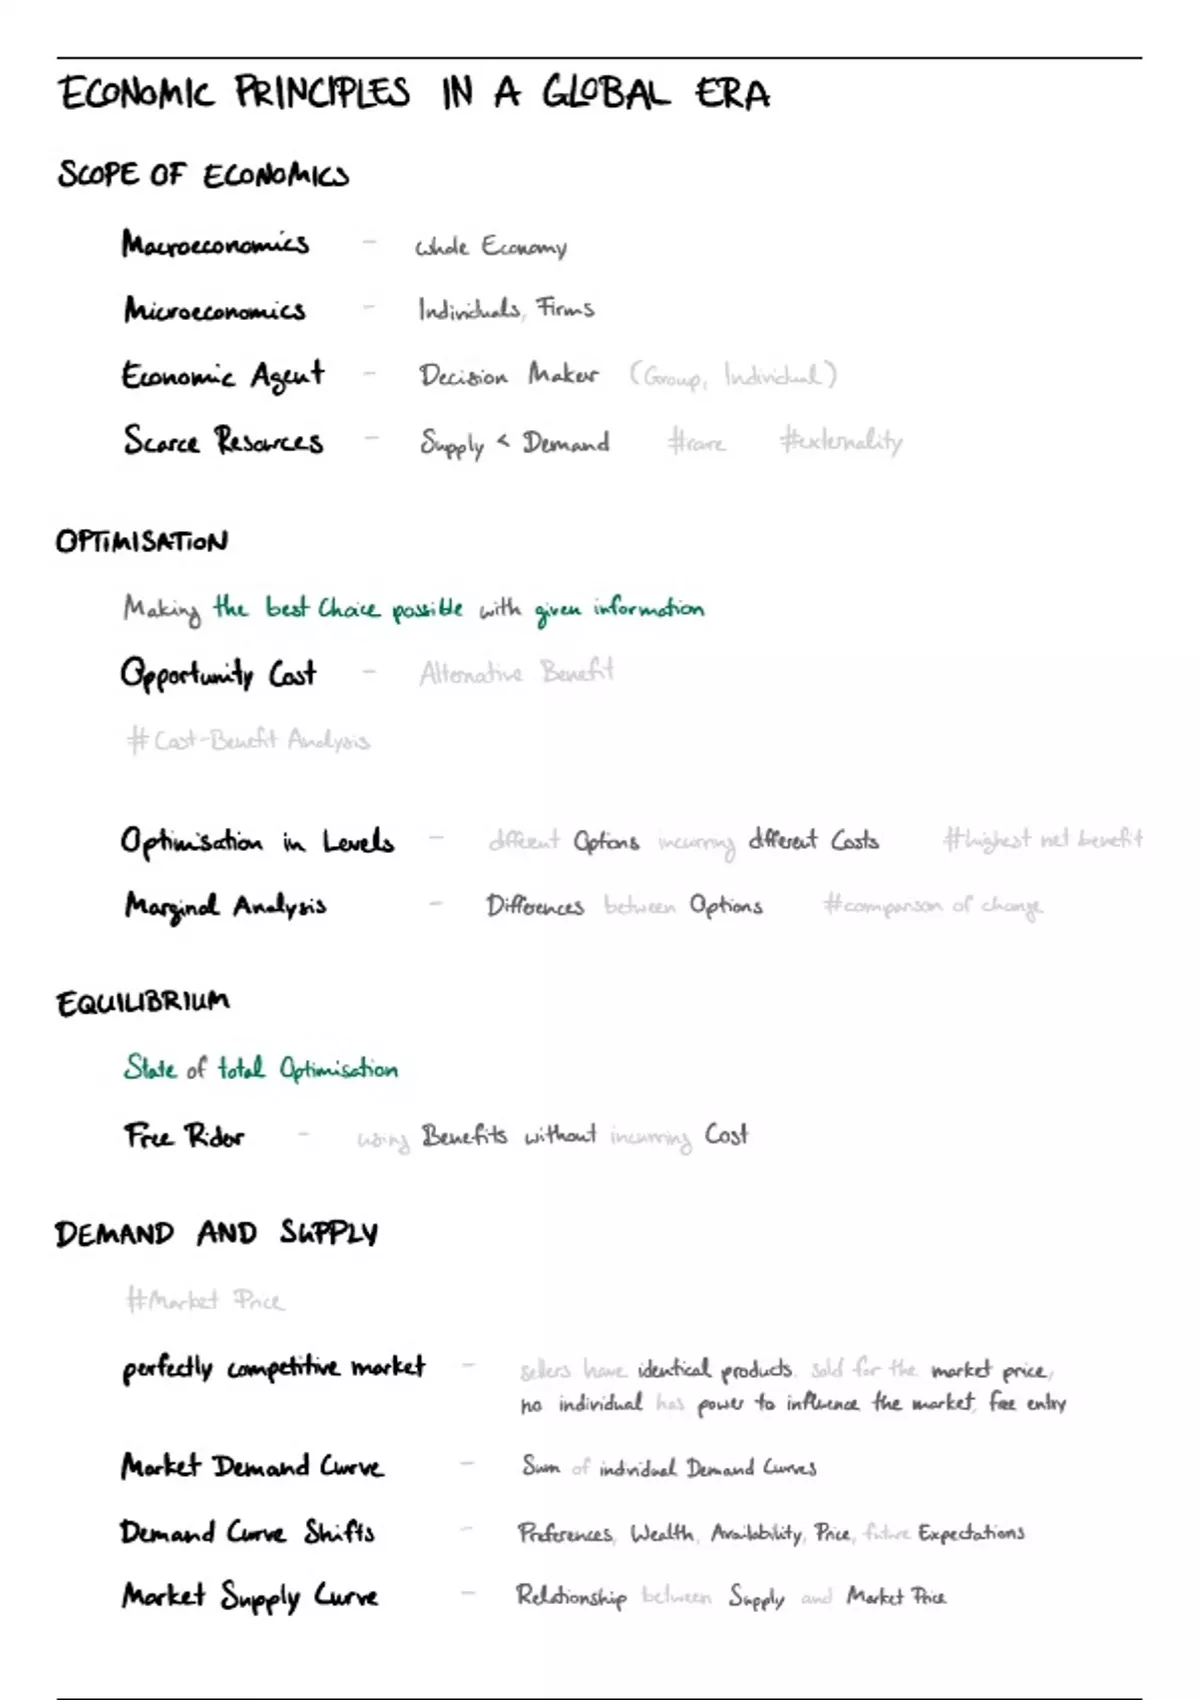 ECONOMIC PRINCIPLES IN A GLOBAL ERA
SCOPE OF ECONOMICS
Macroeconomics - whole Economy
Microeconomics - Individuals, Firms
Economic Agent - Decision Maker (Group, Individual)
Scarce Resources - Supply < Demand #rare #externality
OPTIMISATION
Making the best Choice possible with given information
Opportunity Cost - Alternative Benefit
# Cost-Benefit Analysis
Optimisation in Levels - different Options incurring different Costs #highest net benefit
Marginal Analysis - Differences between Options #comparison of change
EQUILIBRIUM
State of total Optimisation
Free Rider - using Benefits without incurring Cost
DEMAND AND SUPPLY
#Market Price
perfectly competitive market - sellers have identical products, sold for the market price,
no individual has power to influence the market, free entry
Market Demand Curve - Sum of individual Demand Curves
Demand Curve Shifts - Preferences, Wealth, Availability, Price, future Expectations
Market Supply Curve - Relationship between Supply and Market Price